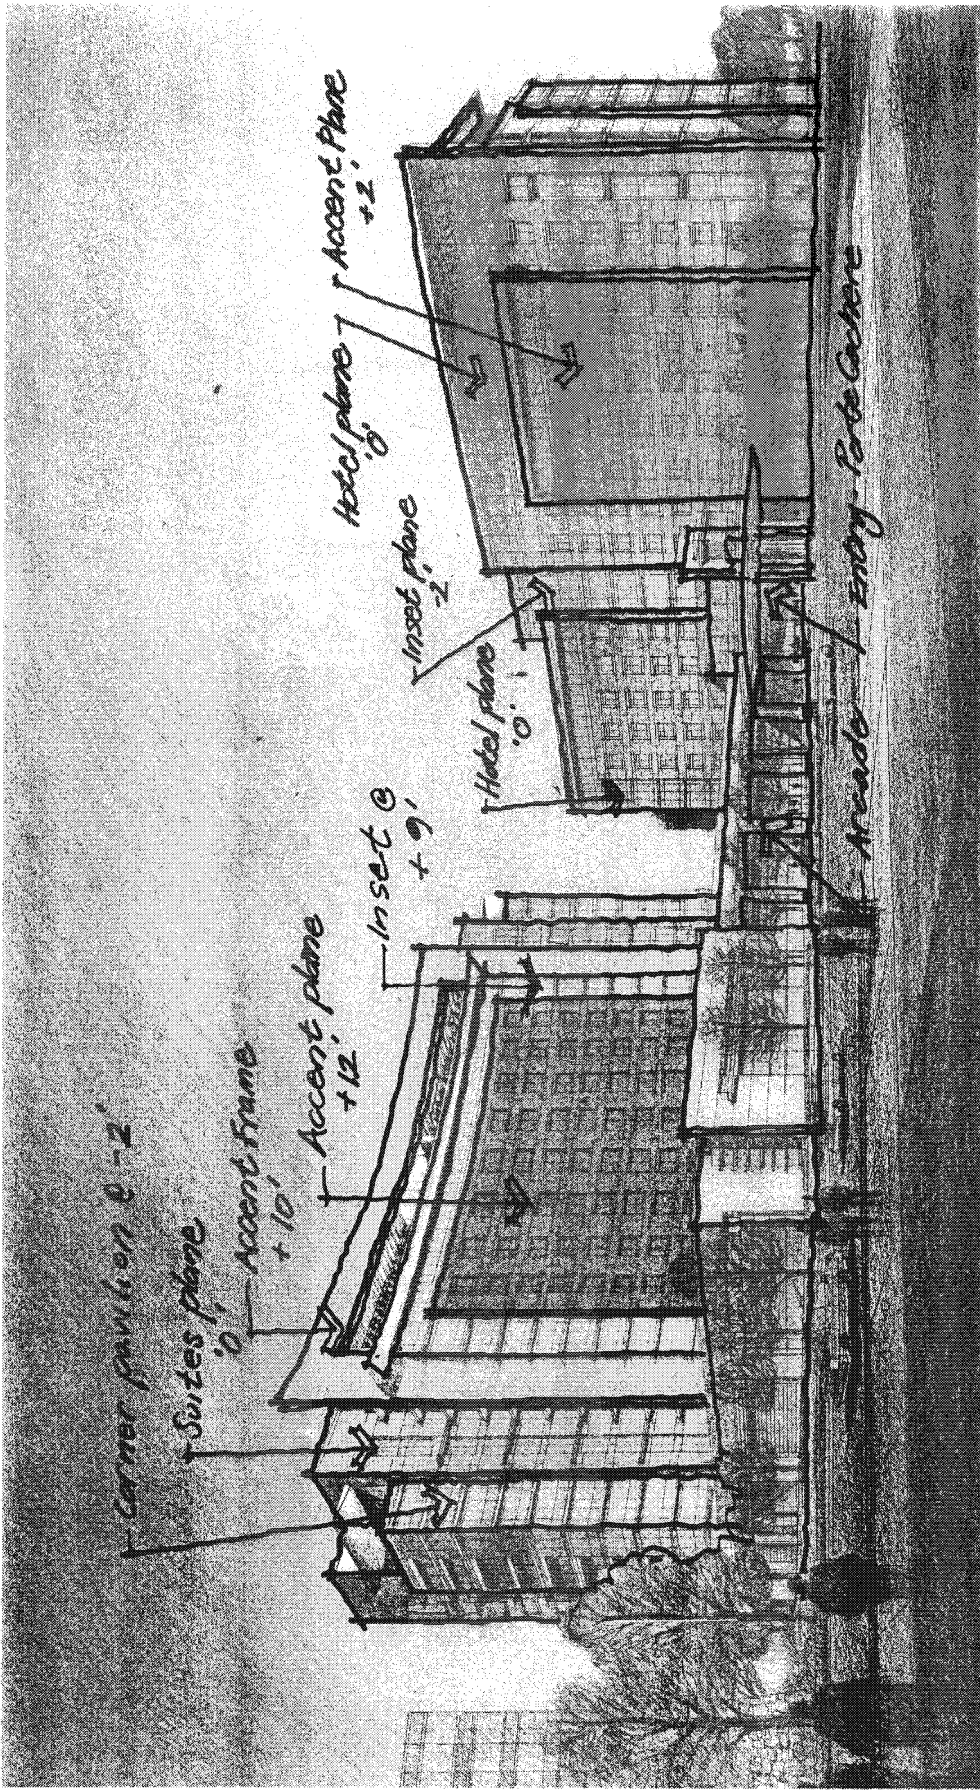 Corner pavilion @ -2'
Suites plane
'0'
Accent Frame
+10'
Accent plane
+12'
Inset @
+9'
Hotel plane
'0'
Inset plane
-2'
Hotel plane
'0'
Accent Plane
+2'
Arcade
Entry Porte Cochere